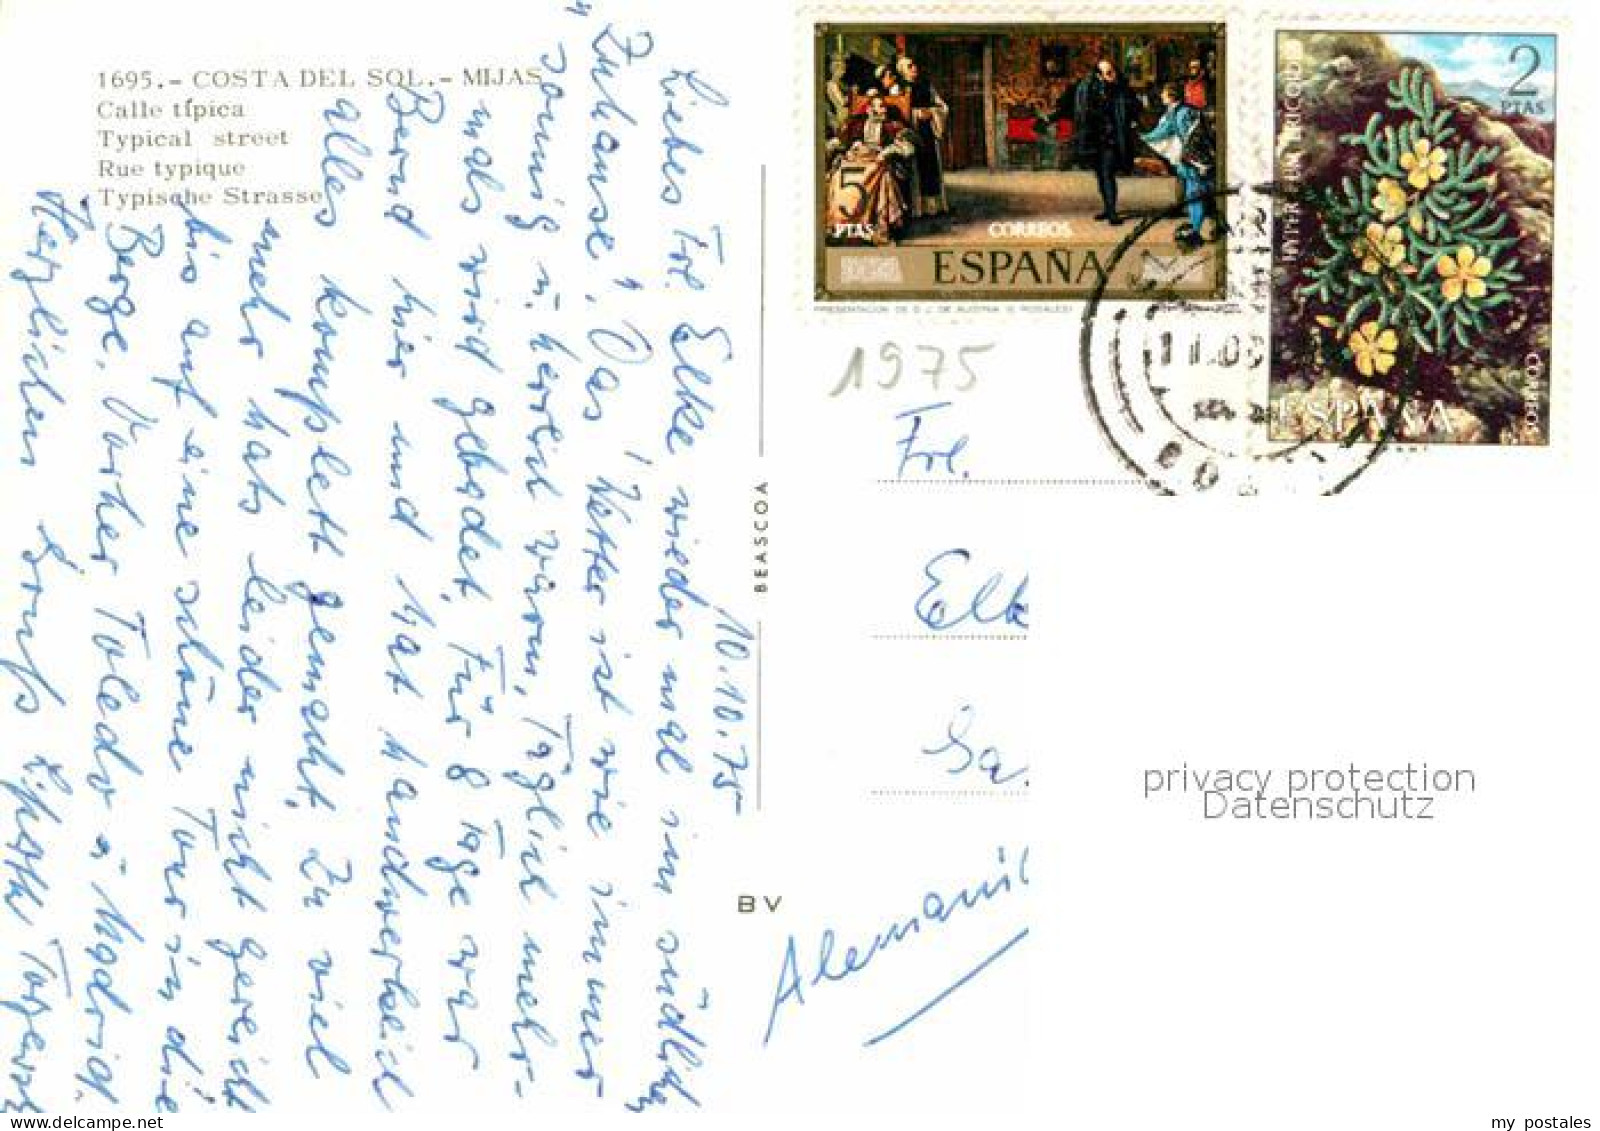 1695.- COSTA DEL SOL.- MIJAS
Calle típica
Typical street
Rue typique
Typische Strasse
10.10.75
Liebes Frl. Elke wieder mal im südlichen
"Zuhause". Das Wetter ist wie immer
sonnig u. herrlich warm, Täglich mehr-
mals wird gebadet. Für 8 Tage war
Bernd hier und hat handwerklich
alles komplett gemacht. Zu viel
mehr hats leider nicht gereicht
bis auf eine schöne Tour in die
Berge. Vorher Toledo u. Madrid.
Herzlichen Gruß
BEASCOA
BV
5
PTAS
CORREOS
ESPAÑA
2
PTAS
CORREOS
ESPAÑA
1975
Frl.
Elk
Sa.
Alemani
privacy protection
Datenschutz
my postales